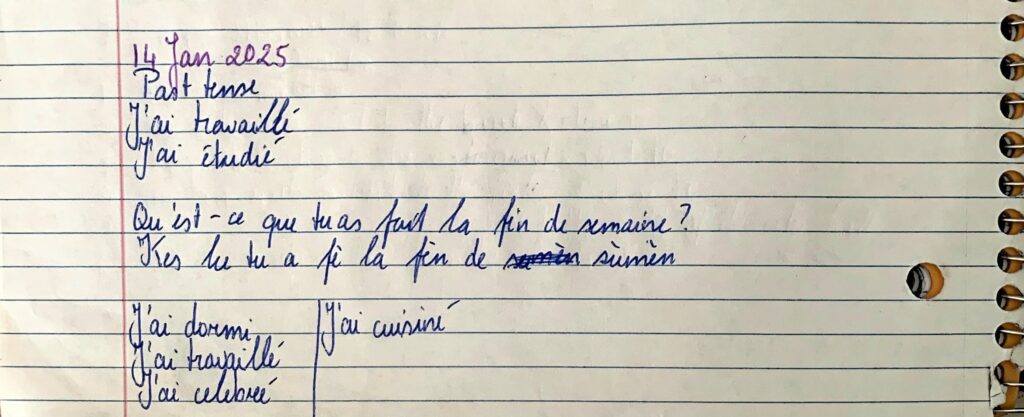 14 Jan 2025
Past tense
J'ai travaillé
J'ai étudié
Qu'est-ce que tu as fait la fin de semaine?
Kes ke tu a fè la fèn de sùmèn
J'ai dormi
J'ai travaillé
J'ai celebréé
J'ai cuisiné